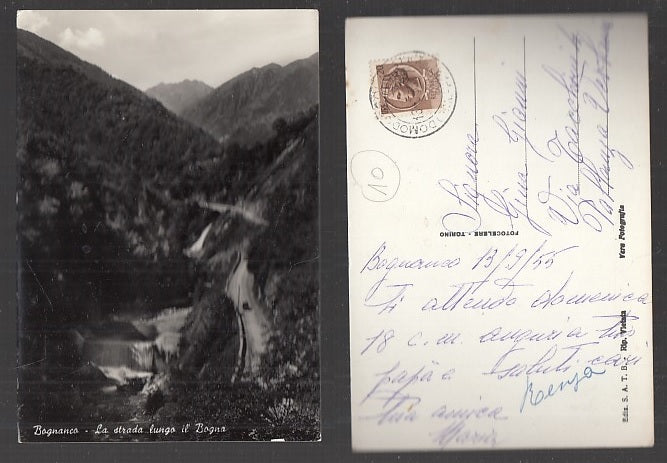 Bognanco - La strada lungo il Bogna
DOMODO
Signora
Gina Gianni
Via
Pallanza
FOTOCELERE - TORINO
Vera Fotografia
Ediz. S. A. T. B. - Rip. Vietata
10
Bognanco 13/9/55
Ti attendo domenica
18 c. m. auguri a tuo
papà e saluti cari
Renza
tua amica
Maria